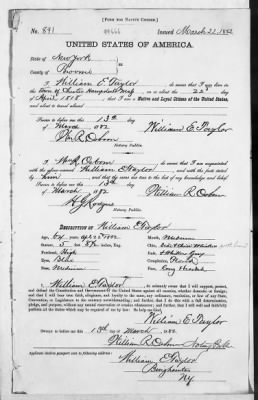 [FORM FOR NATIVE CITIZEN.]
No. 891
Issued March 22, 1882
UNITED STATES OF AMERICA.
State of New York
County of Broome
I, William E Taylor do swear that I was born in the
Town of Chester Hampshire Mass on the 22d
of April 1818; that I am a Native and Loyal Citizen of the United States,
and about to travel abroad.
Sworn to before me, this 13th
of March 1882
William E. Taylor
Wm R Osborn
Notary Public.
I, Wm R Osborn do swear that I am acquainted with
the above-named William E Taylor and with the facts stated
by him, and that the same are true to the best of my knowledge and belief.
Sworn to before me, this 13th
of March 1882
William R. Osborn
Notary Public.
DESCRIPTION OF William E Taylor
Age,
Mouth, Medium
Stature, 5 feet inches, Eng.
Chin,
Forehead, High
Eyes, Blue
Complexion, Florid
Nose, Medium
Face,
I, William E Taylor do solemnly swear that I will support, protect, and
defend the Constitution and Government of the United States against all enemies, whether domestic or foreign; and
that I will bear true faith, allegiance, and loyalty to the same, any ordinance, resolution, or law of any State,
Convention, or Legislature to the contrary notwithstanding; and further, that I do this with a full determination,
pledge, and purpose, without any mental reservation or evasion whatsoever; and further, that I will well and faithfully
perform all the duties which may be required of me by law. So help me God.
William E. Taylor
Sworn to before me, this 13th
March 1882
William R Osborn Notary Public
Applicant desires passport sent to following address:
William E Taylor
Binghamton
NY